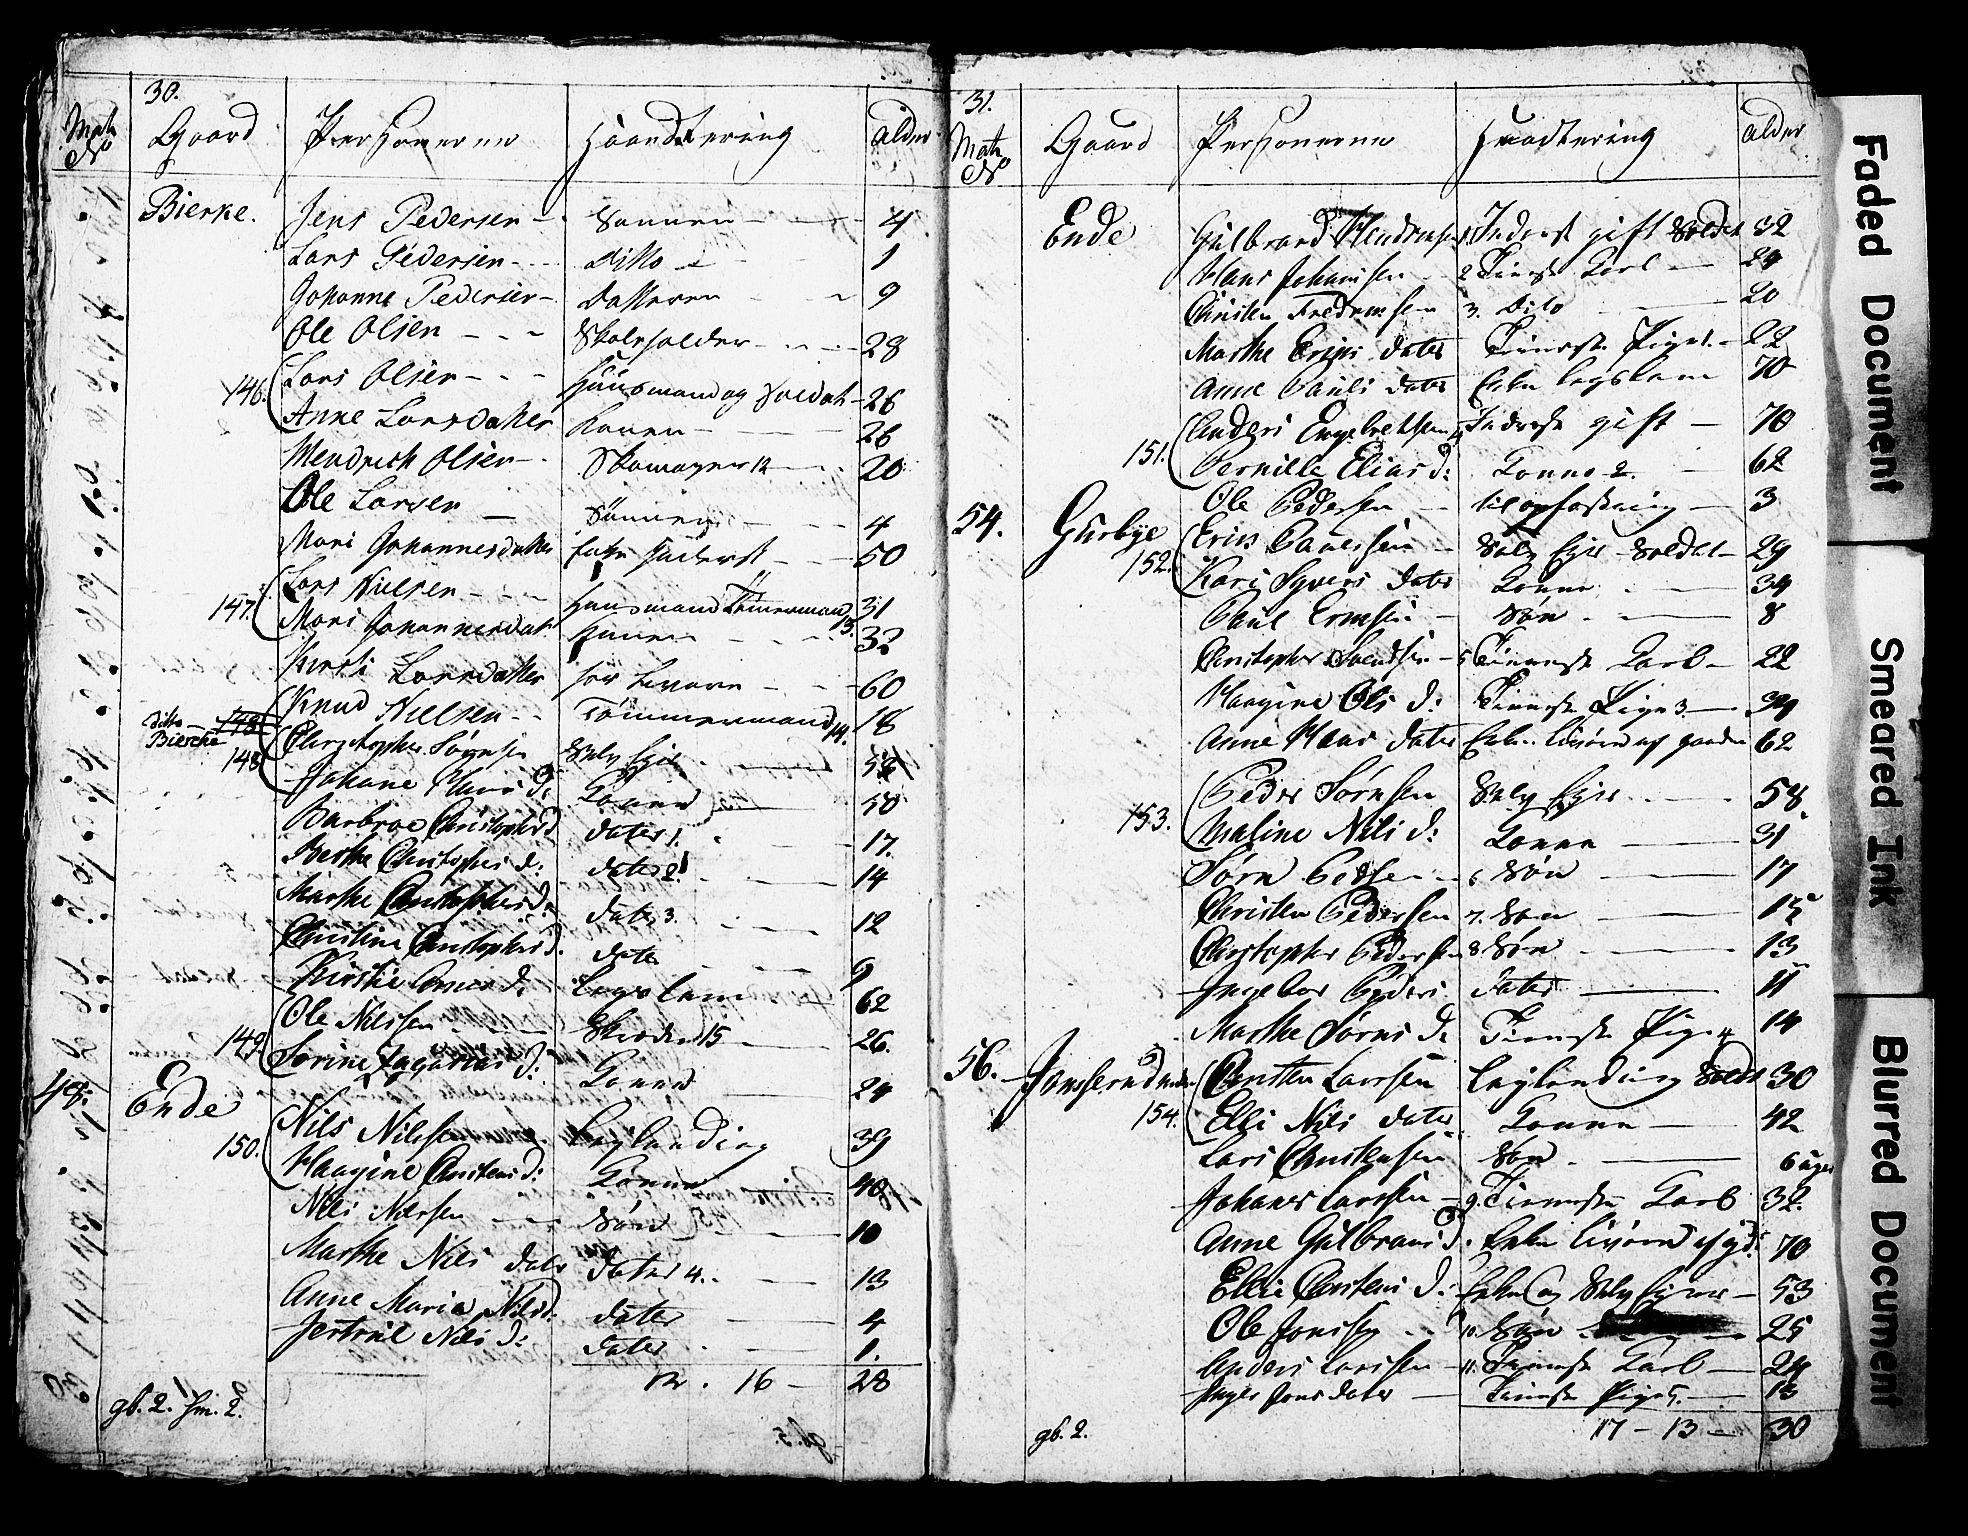 30.
Mats No Gaard Personerne Haandtering alder
Bierke. Jens Pedersen - Sønnen - 4
Lars Pedersen - Ditto - 1
Johanne Pedersen - Datteren - 9
Ole Olsen - Skoleholder - 28
146. Lars Olsen - Huusmand og Soldat - 26
Anne Larsdatter Konen - 26
Hendrich Olsen - Skomager 12 - 20
Ole Larsen - Sønnen - 4
Mari Johannesdatter Enke - 50
147. Lars Nielsen - Huusmand Tømermand 13. 31
Mari Johannesdat Konen - 32
Kirsti Larsdatter - 60
Knud Nielsen - Tømmermand 14. 18
ditto Bierche 148
148 Christopher Sørnsen Selv Ejer - 58
Johane Hans D: Konne 50
Barbroe Christophers d dater 1. - 17.
Berthe Christophers d: dater 2. - 14
Marthe Christophers D: dater 3. - 12
Christine Christophers d. dater - 9
Kirstie d: Legslem 62
149. Ole Nilssen - Skreder 15 - 26.
Sorine Zagarias d: Konne 24
48. Ende
150. Nils Nilssen Leylending 39
Haagine Christens d: Konne 40
Nils Nilssen - Søn 10
Marthe Nils dater dater 4. - 13
Anne Maria Nils d: dater - 4
Jertrue Nils d: dater - 1.
16 - 28
gb. 2. Hm. 2.
gb. 5.
31.
Mats No Gaard Personerne Haandtering alder
Ende Gulbrand Hendrensen 1. Inderst gift Soldat 32
Hans Johansen - 2 Tieneste Karl - 24
Christen Fredrensen 3. Dito - 20
Marthe Erigs dater Tieneste Pige 1. - 22
Anne Pouls dater Enke Legslem 70
151. Anders Engebretsen 4 Inderst gift - 70
Pernille Elias d: Konne 2. - 62
Ole Pedersen - til opfostring - 3
54. Gurbye
152. Erics Pauelsen - Selv Ejer - Soldat - 29
Kari Syvers dater Konne - 34
Paul Ericsen - Søn - 8
Christopher Svendsen - 5 Tieneste Karl - 22
Haagine Ols d: Tieneste Pige 3. - 34
Anne Hans dater Enke livøred af gaarden 62
153. Peder Sørnsen Selv Ejer - 58
Maline Nils d: Konne - 31
Sørn Peders - 6 Søn - 17
Christen Pedersen 7. Søn - 15
Christopher Pedersen 8. Søn - 13
Ingebor Peders dater - 11
Marthe Sørns d: Tieneste Pige 4 14
56. Jonserud
154. Christen Larssen Leylending Soldat 30
Elli Nils dater Konne - 42
Lars Christensen Søn - 6 uger
Johanes Larssen - 9. Tieneste Karl 32.
Anne Gulbrans d. Enke livøred af gd: 70
Elli Christens d: Enke og Selv Ejer - 53
Ole Jonssen - 10. Søn - 25
Anders Larssen - 11. Tieneste Karl - 24
Inger Jons dater - Tieneste Pige 5. - 13
17 - 13 - 30
gb. 2.
Faded Document
Smeared Ink
Blurred Document